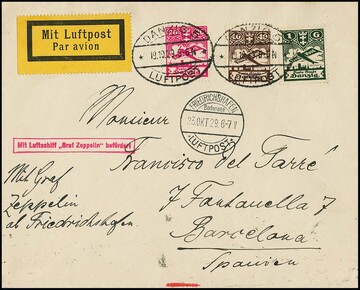 Mit Luftpost
Par avion
DANZIG 5
LUFTPOST
DANZIG 5
LUFTPOST
1 G
Danzig
FRIEDRICHSHAFEN
(Bodensee)
23.OKT 29. 6-7 V
LUFTPOST
Monsieur
Mit Luftschiff „Graf Zeppelin" befördert
Francisco del Tarré
7 Fontanella 7
Barcelona
Spanien
Mit Graf
Zeppelin
ab Friedrichshafen